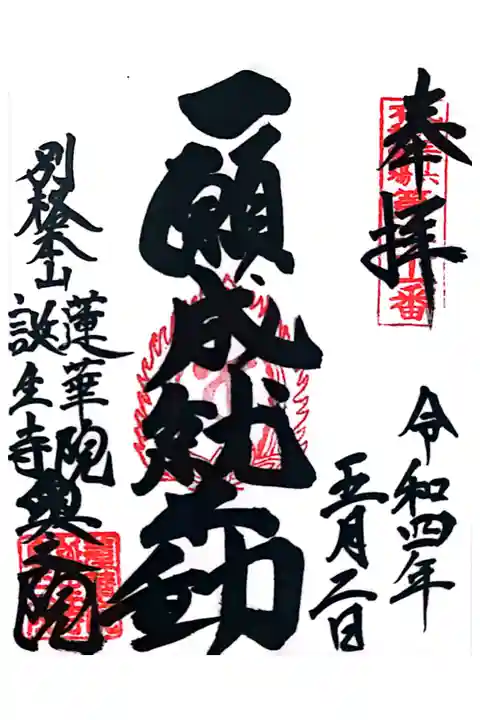 奉拝
令和四年
五月二日
一願成就不動
別格本山
蓮華院
誕生寺
奥之院